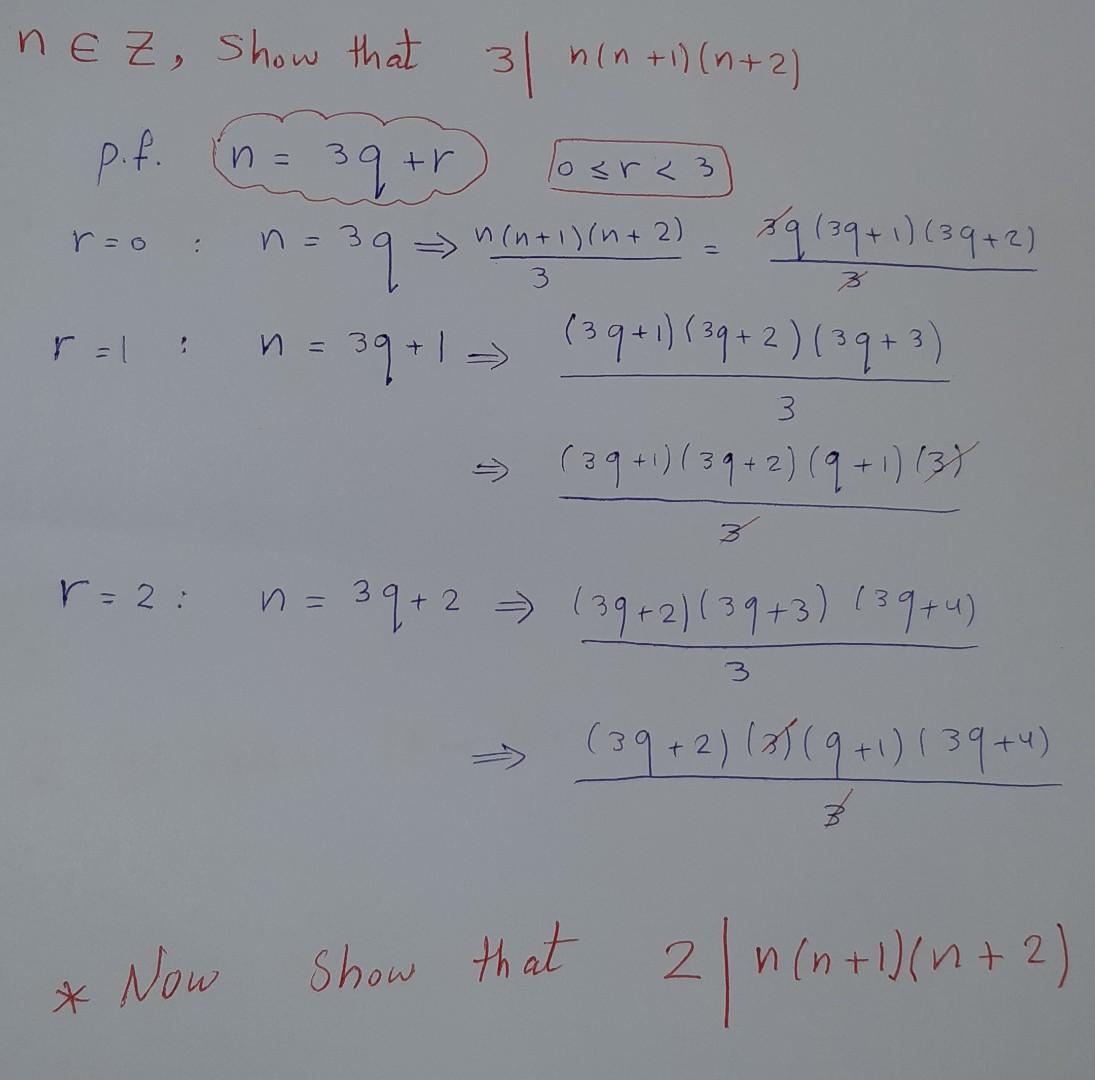 n ∈ Z, Show that 3 | n(n+1)(n+2)
p.f. n = 3q + r 0 ≤ r < 3
r = 0 : n = 3q ⇒ n(n+1)(n+2)/3 = 3q(3q+1)(3q+2)/3
r = 1 : n = 3q + 1 ⇒ (3q+1)(3q+2)(3q+3)/3
⇒ (3q+1)(3q+2)(q+1)(3)/3
r = 2 : n = 3q + 2 ⇒ (3q+2)(3q+3)(3q+4)/3
⇒ (3q+2)(3)(q+1)(3q+4)/3
* Now Show that 2 | n(n+1)(n+2)